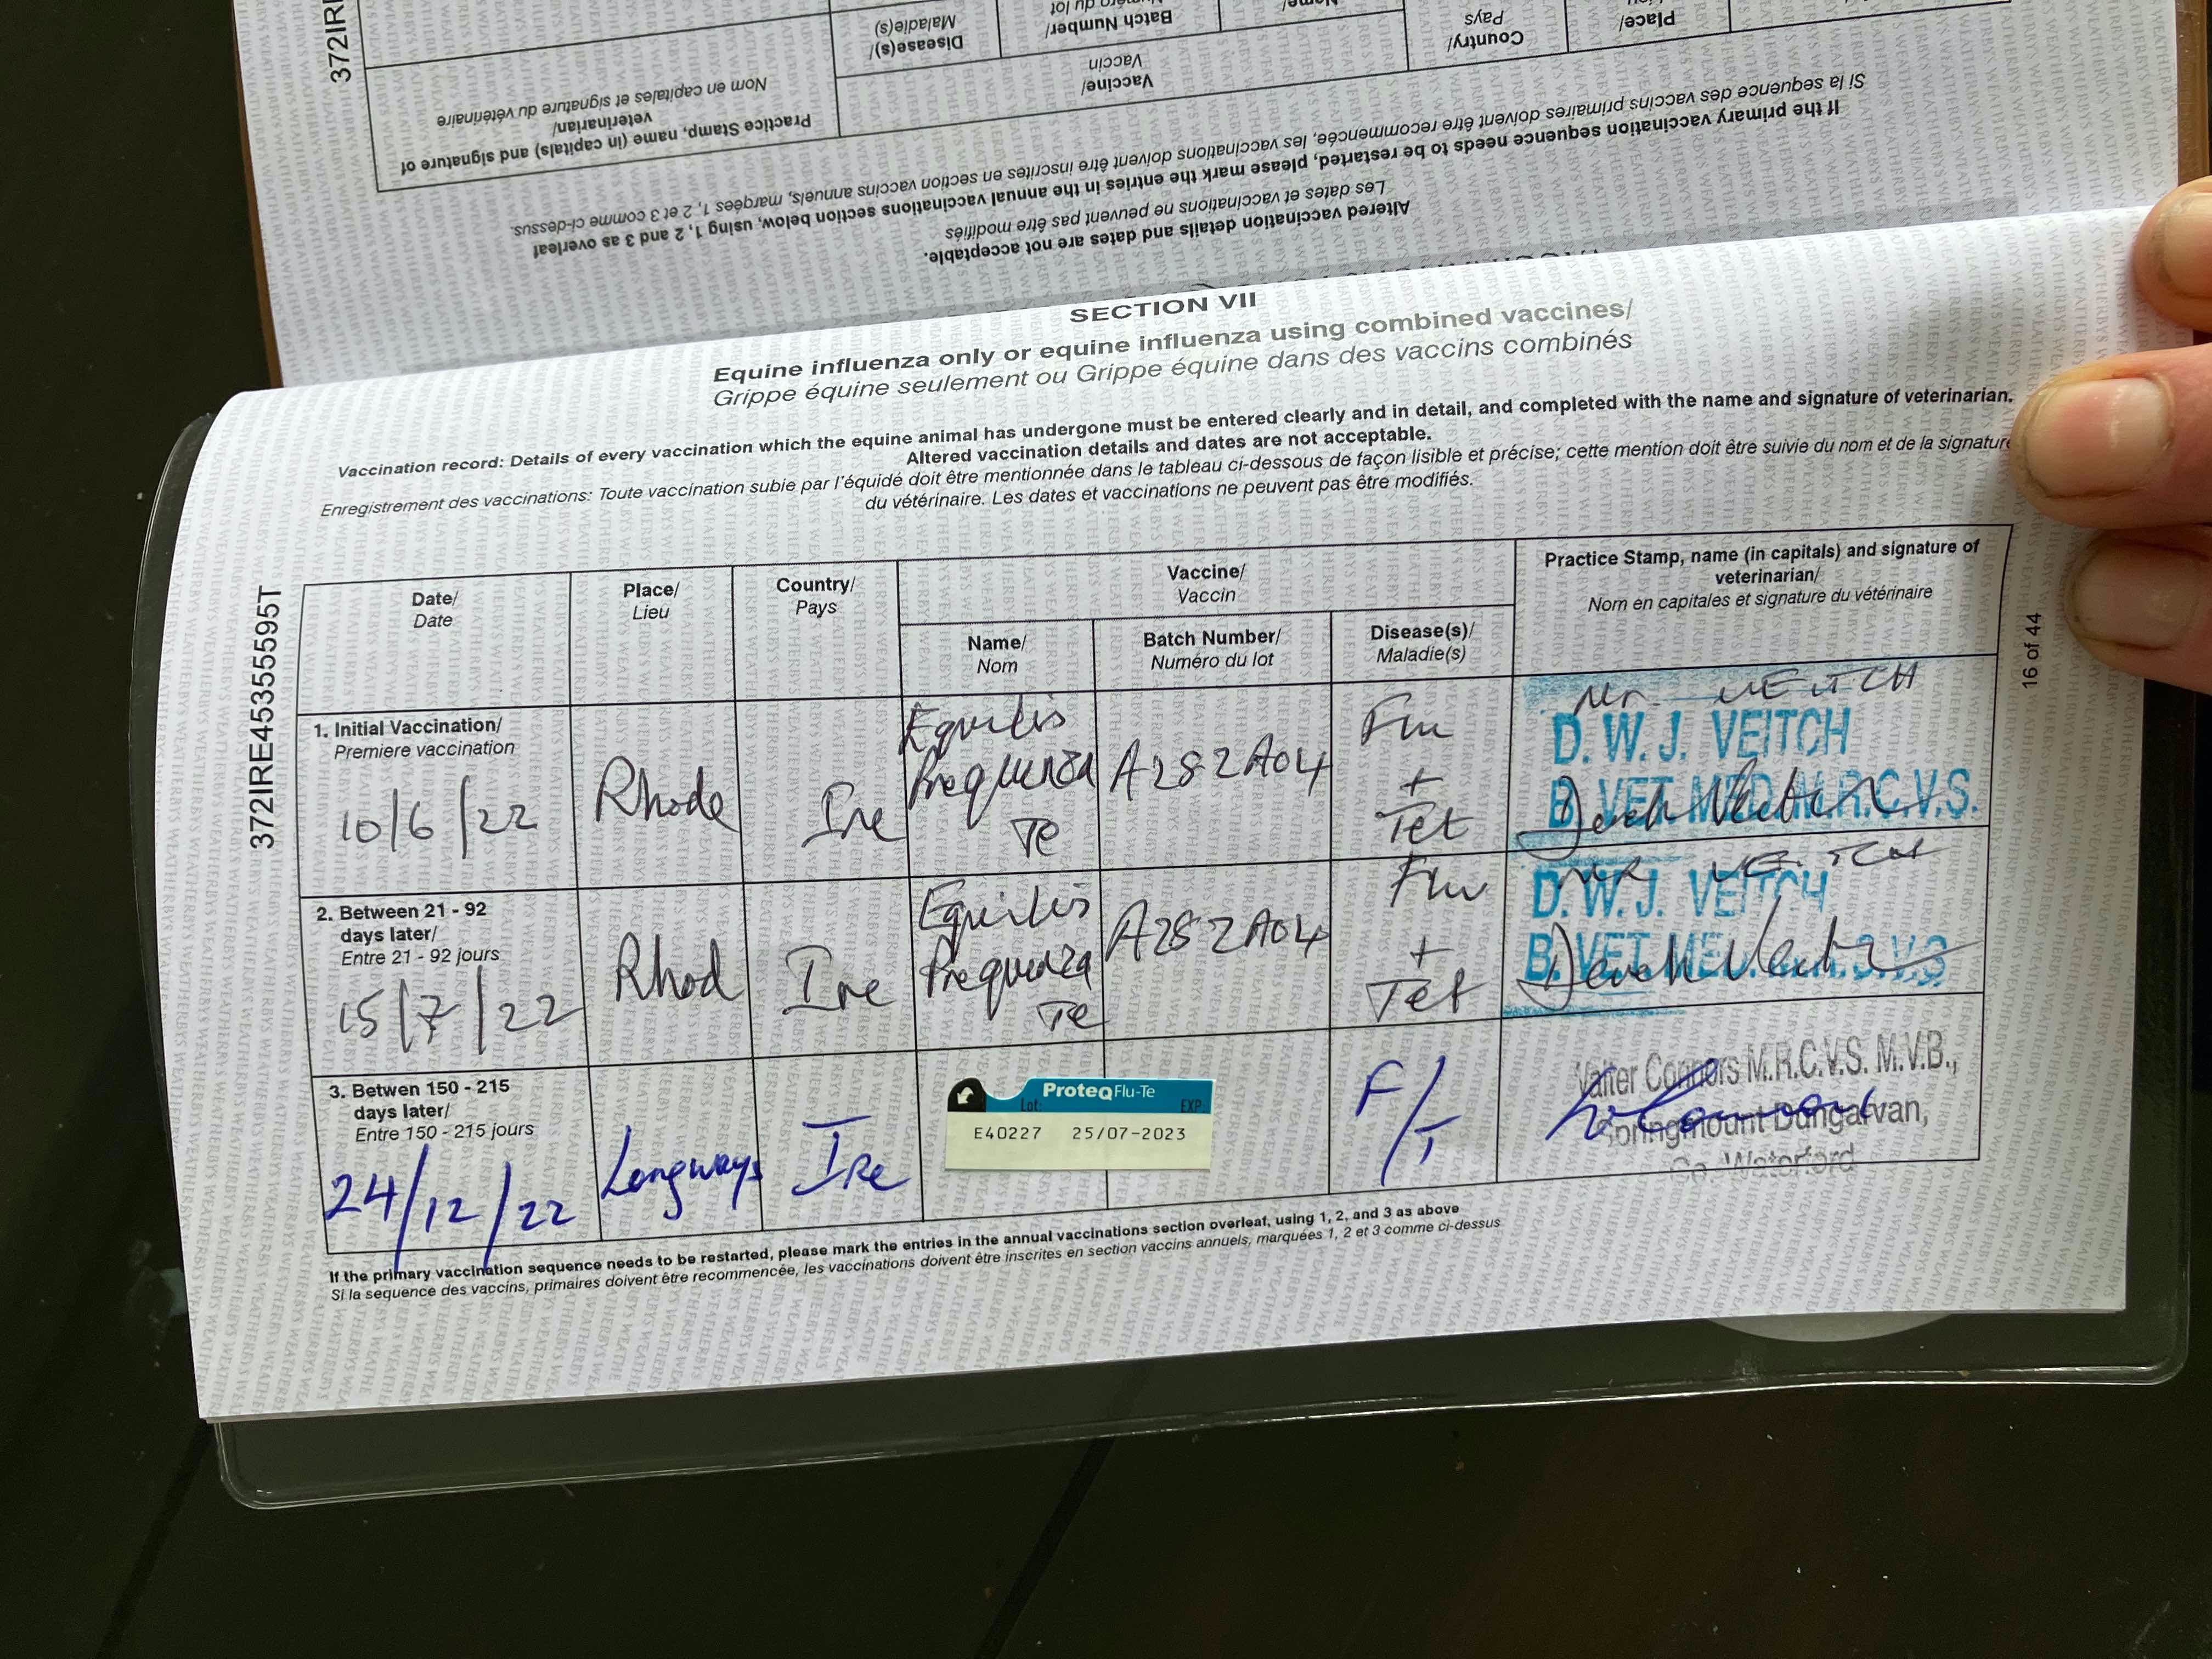 372IRE
Practice Stamp, name (in capitals) and signature of
veterinarian/
Nom en capitales et signature du vétérinaire
Vaccine/
Vaccin
Disease(s)/
Maladie(s)
Batch Number/
Country/
Pays
Place/
If the primary vaccination sequence needs to be restarted, please mark the entries in the annual vaccinations section below, using 1, 2 and 3 as overleaf
Si la sequence des vaccins primaires doivent être recommencée, les vaccinations doivent être inscrites en section vaccins annuels, marquées 1, 2 et 3 comme ci-dessus.
Altered vaccination details and dates are not acceptable.
Les dates et vaccinations ne peuvent pas être modifiés
SECTION VII
Equine influenza only or equine influenza using combined vaccines/
Grippe équine seulement ou Grippe équine dans des vaccins combinés
Vaccination record: Details of every vaccination which the equine animal has undergone must be entered clearly and in detail, and completed with the name and signature of veterinarian.
Altered vaccination details and dates are not acceptable.
Enregistrement des vaccinations: Toute vaccination subie par l'équidé doit être mentionnée dans le tableau ci-dessous de façon lisible et précise; cette mention doit être suivie du nom et de la signature
du vétérinaire. Les dates et vaccinations ne peuvent pas être modifiés.
372IRE45355595T
16 of 44
Date/
Date
Place/
Lieu
Country/
Pays
Vaccine/
Vaccin
Name/
Nom
Batch Number/
Numéro du lot
Disease(s)/
Maladie(s)
Practice Stamp, name (in capitals) and signature of
veterinarian/
Nom en capitales et signature du vétérinaire
1. Initial Vaccination/
Premiere vaccination
10/6/22
Rhode
Ire
Equilis
Prequenza
Te
A282A04
Flu
+
Tet
Mr VEITCH
D. W. J. VEITCH
B. VET. MED. M.R.C.V.S.
Derek Veitch
2. Between 21 - 92
days later/
Entre 21 - 92 jours
15/7/22
Rhod
Ire
Equilis
Prequenza
Te
A282A04
Flu
+
Tet
MR VEITCH
D. W. J. VEITCH
B. VET. MED. M.R.C.V.S
Derek Veitch
3. Betwen 150 - 215
days later/
Entre 150 - 215 jours
24/12/22
Longways
IRe
ProteqFlu-Te
Lot: EXP.
E40227 25/07-2023
F/T
Walter Connors M.R.C.V.S. M.V.B.,
Springmount Dungarvan,
Co. Waterford
If the primary vaccination sequence needs to be restarted, please mark the entries in the annual vaccinations section overleaf, using 1, 2, and 3 as above
Si la sequence des vaccins, primaires doivent être recommencée, les vaccinations doivent être inscrites en section vaccins annuels, marquées 1, 2 et 3 comme ci-dessus